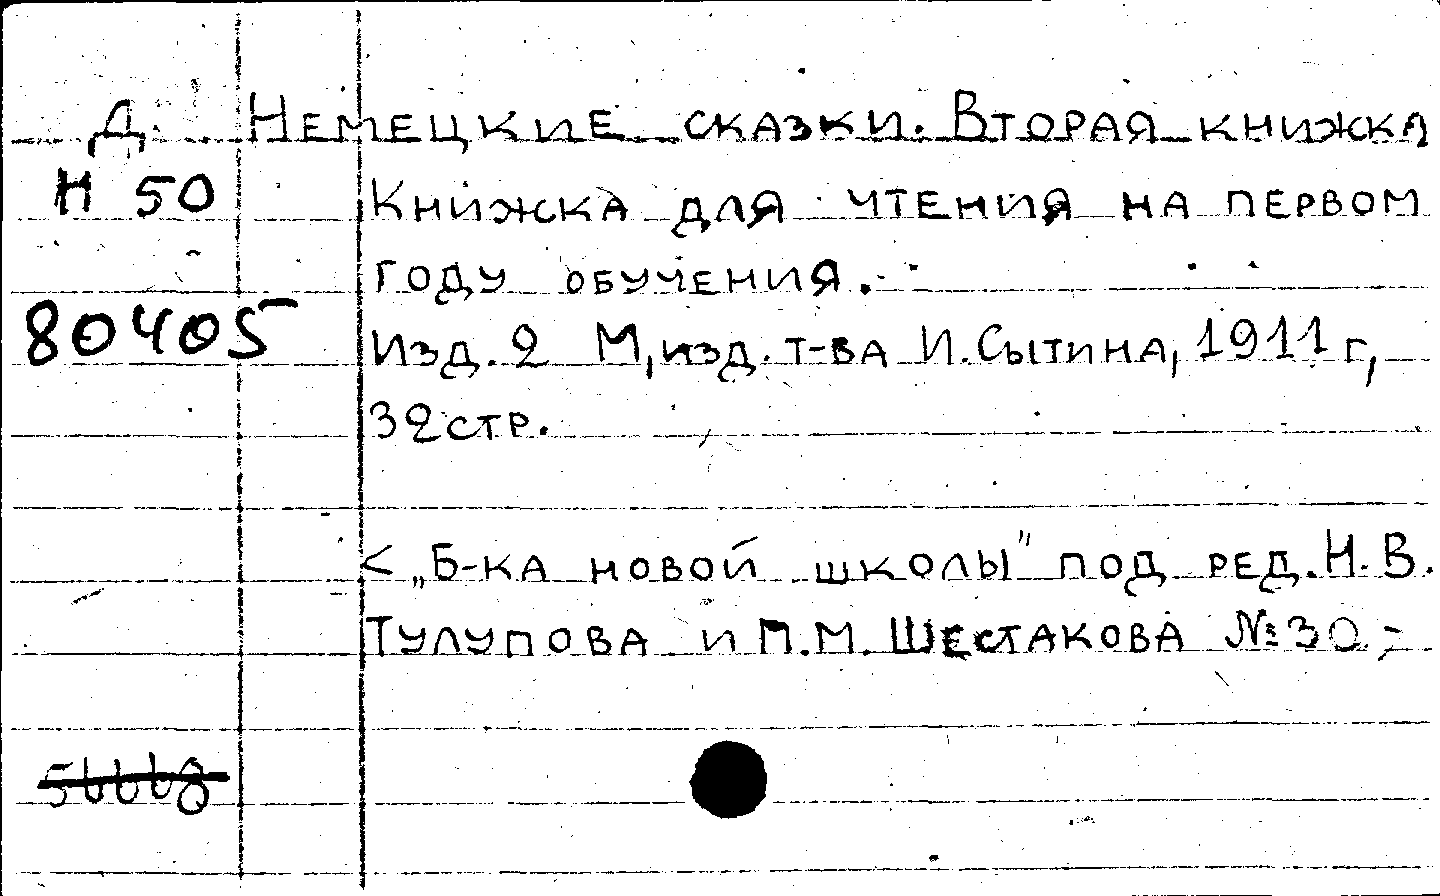 Д. Немецкие сказки. Вторая книжка
Н 50 Книжка для чтения на первом
году обучения.
80405 Изд. 2 М, изд. т-ва И. Сытина, 1911 г,
32 стр.
< „Б-ка новой школы" под ред. Н. В.
Тулупова и П. М. Шестакова № 30.-